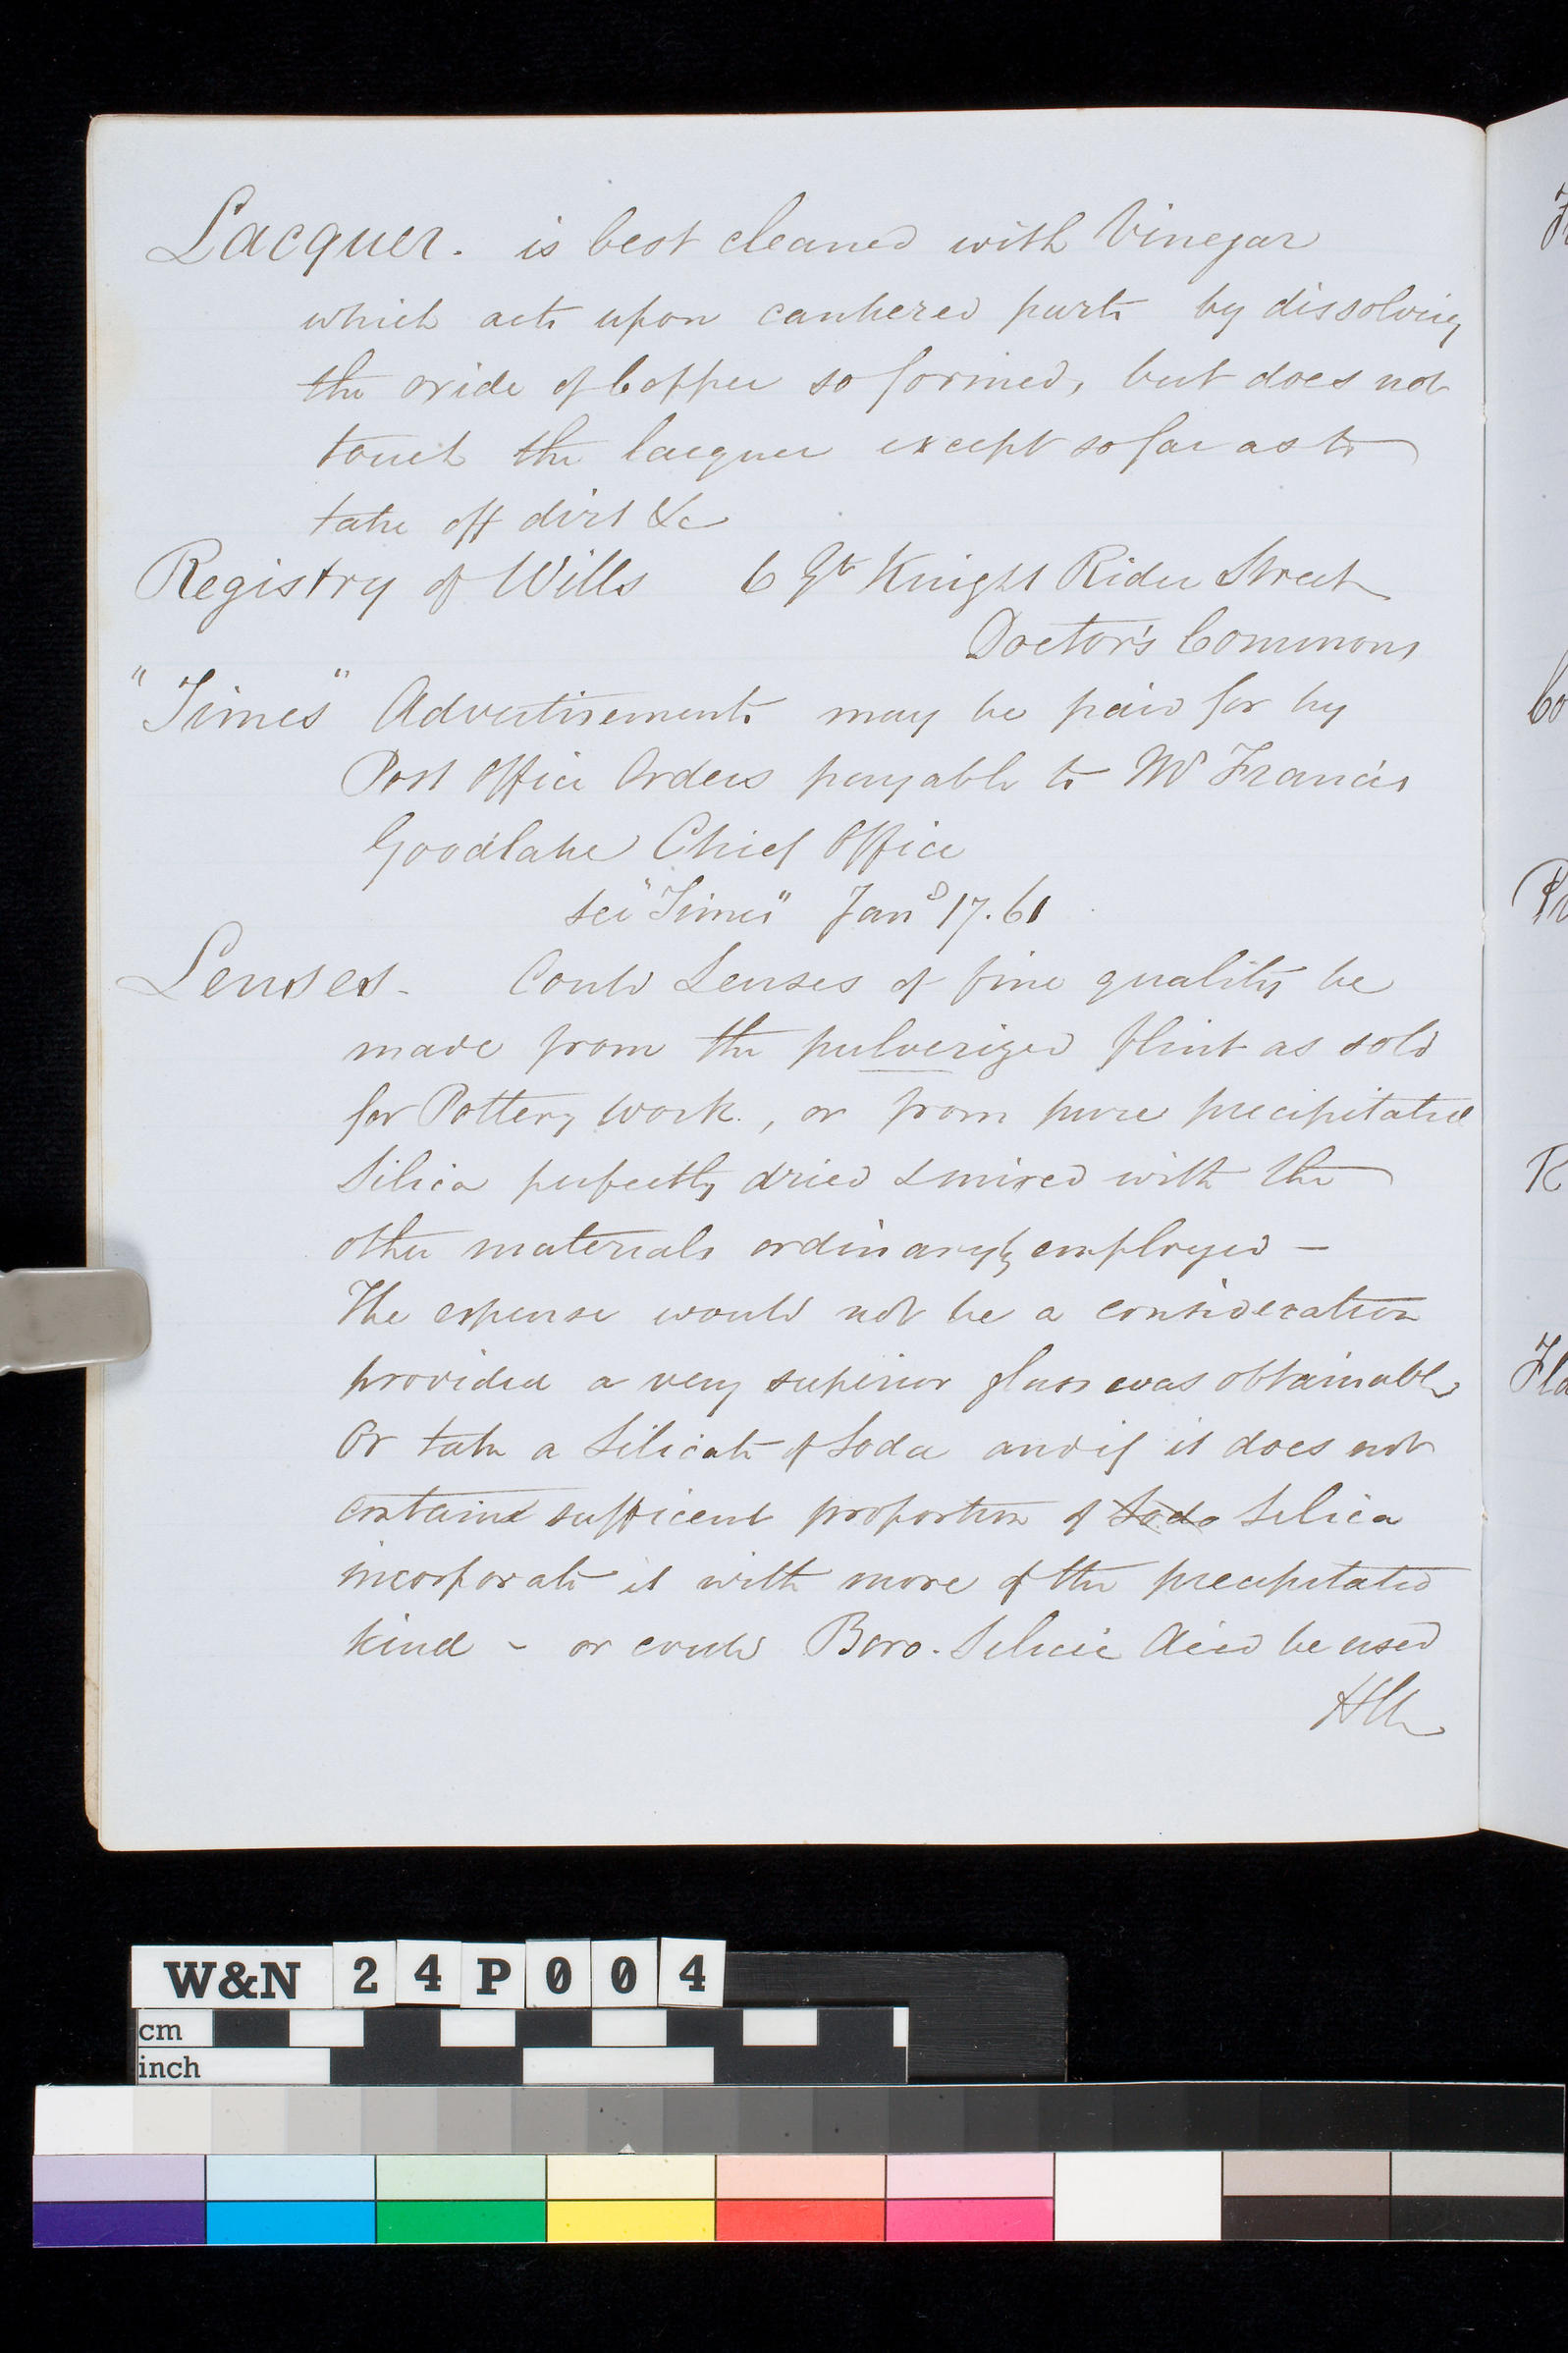 Lacquer. is best cleaned with Vinegar
which acts upon cankered parts by dissolving
the oxide of Copper so formed, but does not
touch the lacquer except so far as to
take off dirt &c
Registry of Wills 6 Gt Knight Rider Street
Doctor's Commons
"Times" Advertisements may be paid for by
Post Office Orders payable to Mr Francis
Goodlake Chief Office
see "Times" Jany 17. 61
Lenses - Could Lenses of fine quality be
made from the pulverized flint as sold
for Pottery work., or from pure precipitated
Silica perfectly dried & mixed with the
other materials ordinaryly employed -
The expense would not be a consideration
provided a very superior glass was obtainable
Or take a Silicate of Soda and if it does not
contain sufficent proportion of Soda Silica
incorporate it with more of the precipitated
kind - or could Boro-Silicic Acid be used
W&N 24P004
cm
inch